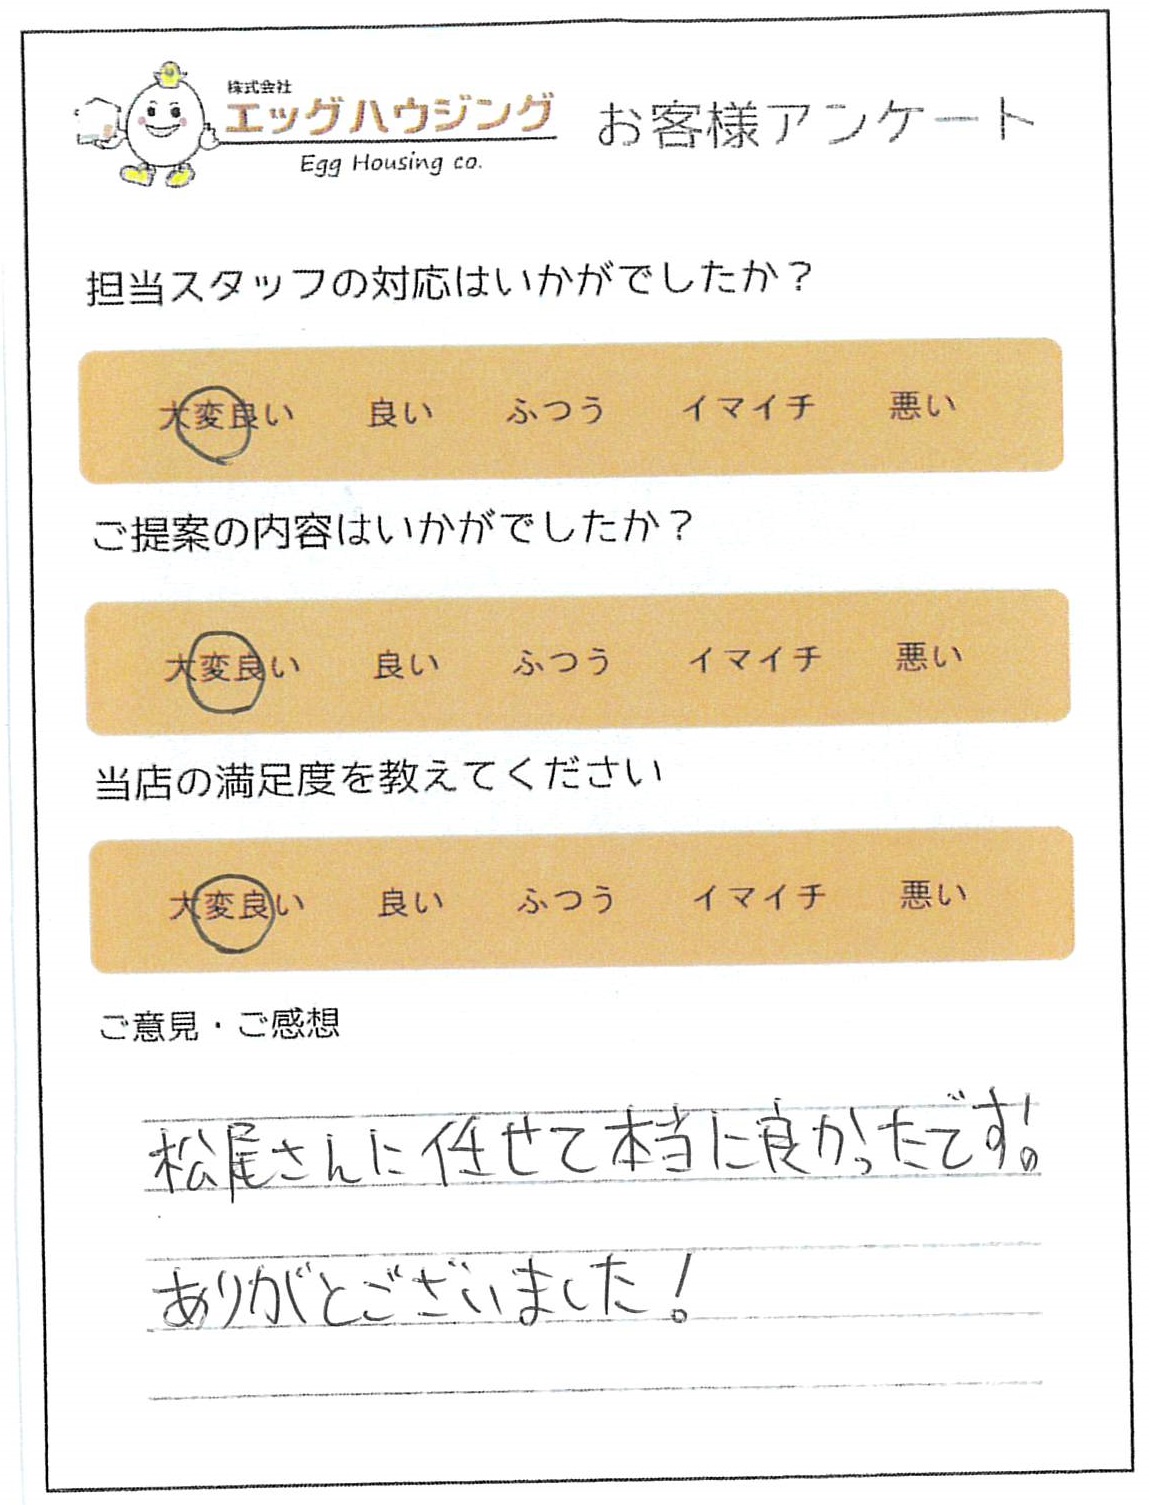 株式会社
エッグハウジング
Egg Housing co.
お客様アンケート
担当スタッフの対応はいかがでしたか？
大変良い 良い ふつう イマイチ 悪い
ご提案の内容はいかがでしたか？
大変良い 良い ふつう イマイチ 悪い
当店の満足度を教えてください
大変良い 良い ふつう イマイチ 悪い
ご意見・ご感想
松尾さんに任せて本当に良かったです！
ありがとございました！